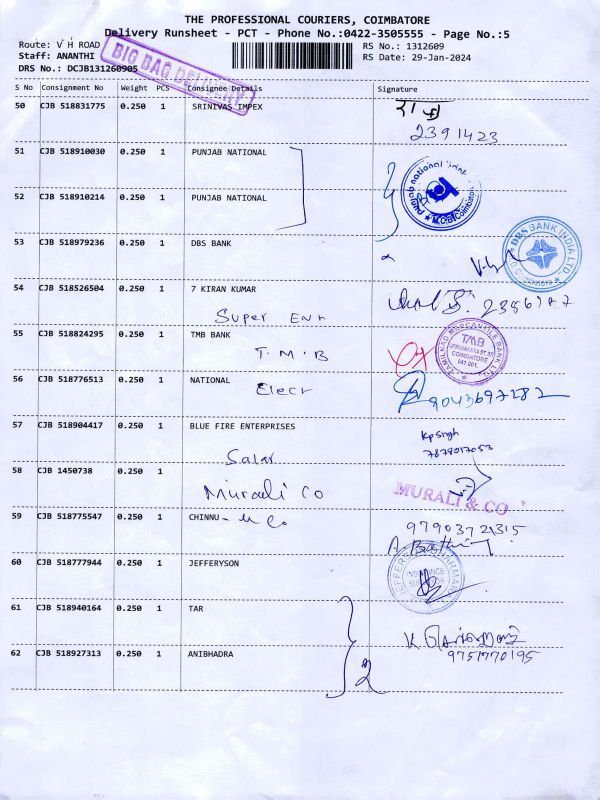 THE PROFESSIONAL COURIERS, COIMBATORE
Delivery Runsheet - PCT - Phone No.:0422-3505555 - Page No.:5
Route: V H ROAD RS No.: 1312609
Staff: ANANTHI RS Date: 29-Jan-2024
DRS No.: DCJB131260905
BIG BAG DELIVERY
S No Consignment No Weight PCS Consignee Details Signature
50 CJB 518831775 0.250 1 SRINIVAS IMPEX
2391423
51 CJB 518910030 0.250 1 PUNJAB NATIONAL
52 CJB 518910214 0.250 1 PUNJAB NATIONAL
53 CJB 518979236 0.250 1 DBS BANK
DBS BANK INDIA LTD
54 CJB 518526504 0.250 1 7 KIRAN KUMAR
Super Enn
55 CJB 518824295 0.250 1 TMB BANK
T.M.B
TAMILNAD MERCANTILE BANK LTD
TMB
COIMBATORE
641 001
56 CJB 518776513 0.250 1 NATIONAL
Elect 9043697282
57 CJB 518904417 0.250 1 BLUE FIRE ENTERPRISES
Kp Singh
7878017053
Salar
58 CJB 1450738 0.250 1
Murali Co MURALI & CO
59 CJB 518775547 0.250 1 CHINNU - M Co
97903721315
60 CJB 518777944 0.250 1 JEFFERYSON
INSURANCE
61 CJB 518940164 0.250 1 TAR
62 CJB 518927313 0.250 1 ANIBHADRA
9751770195
2